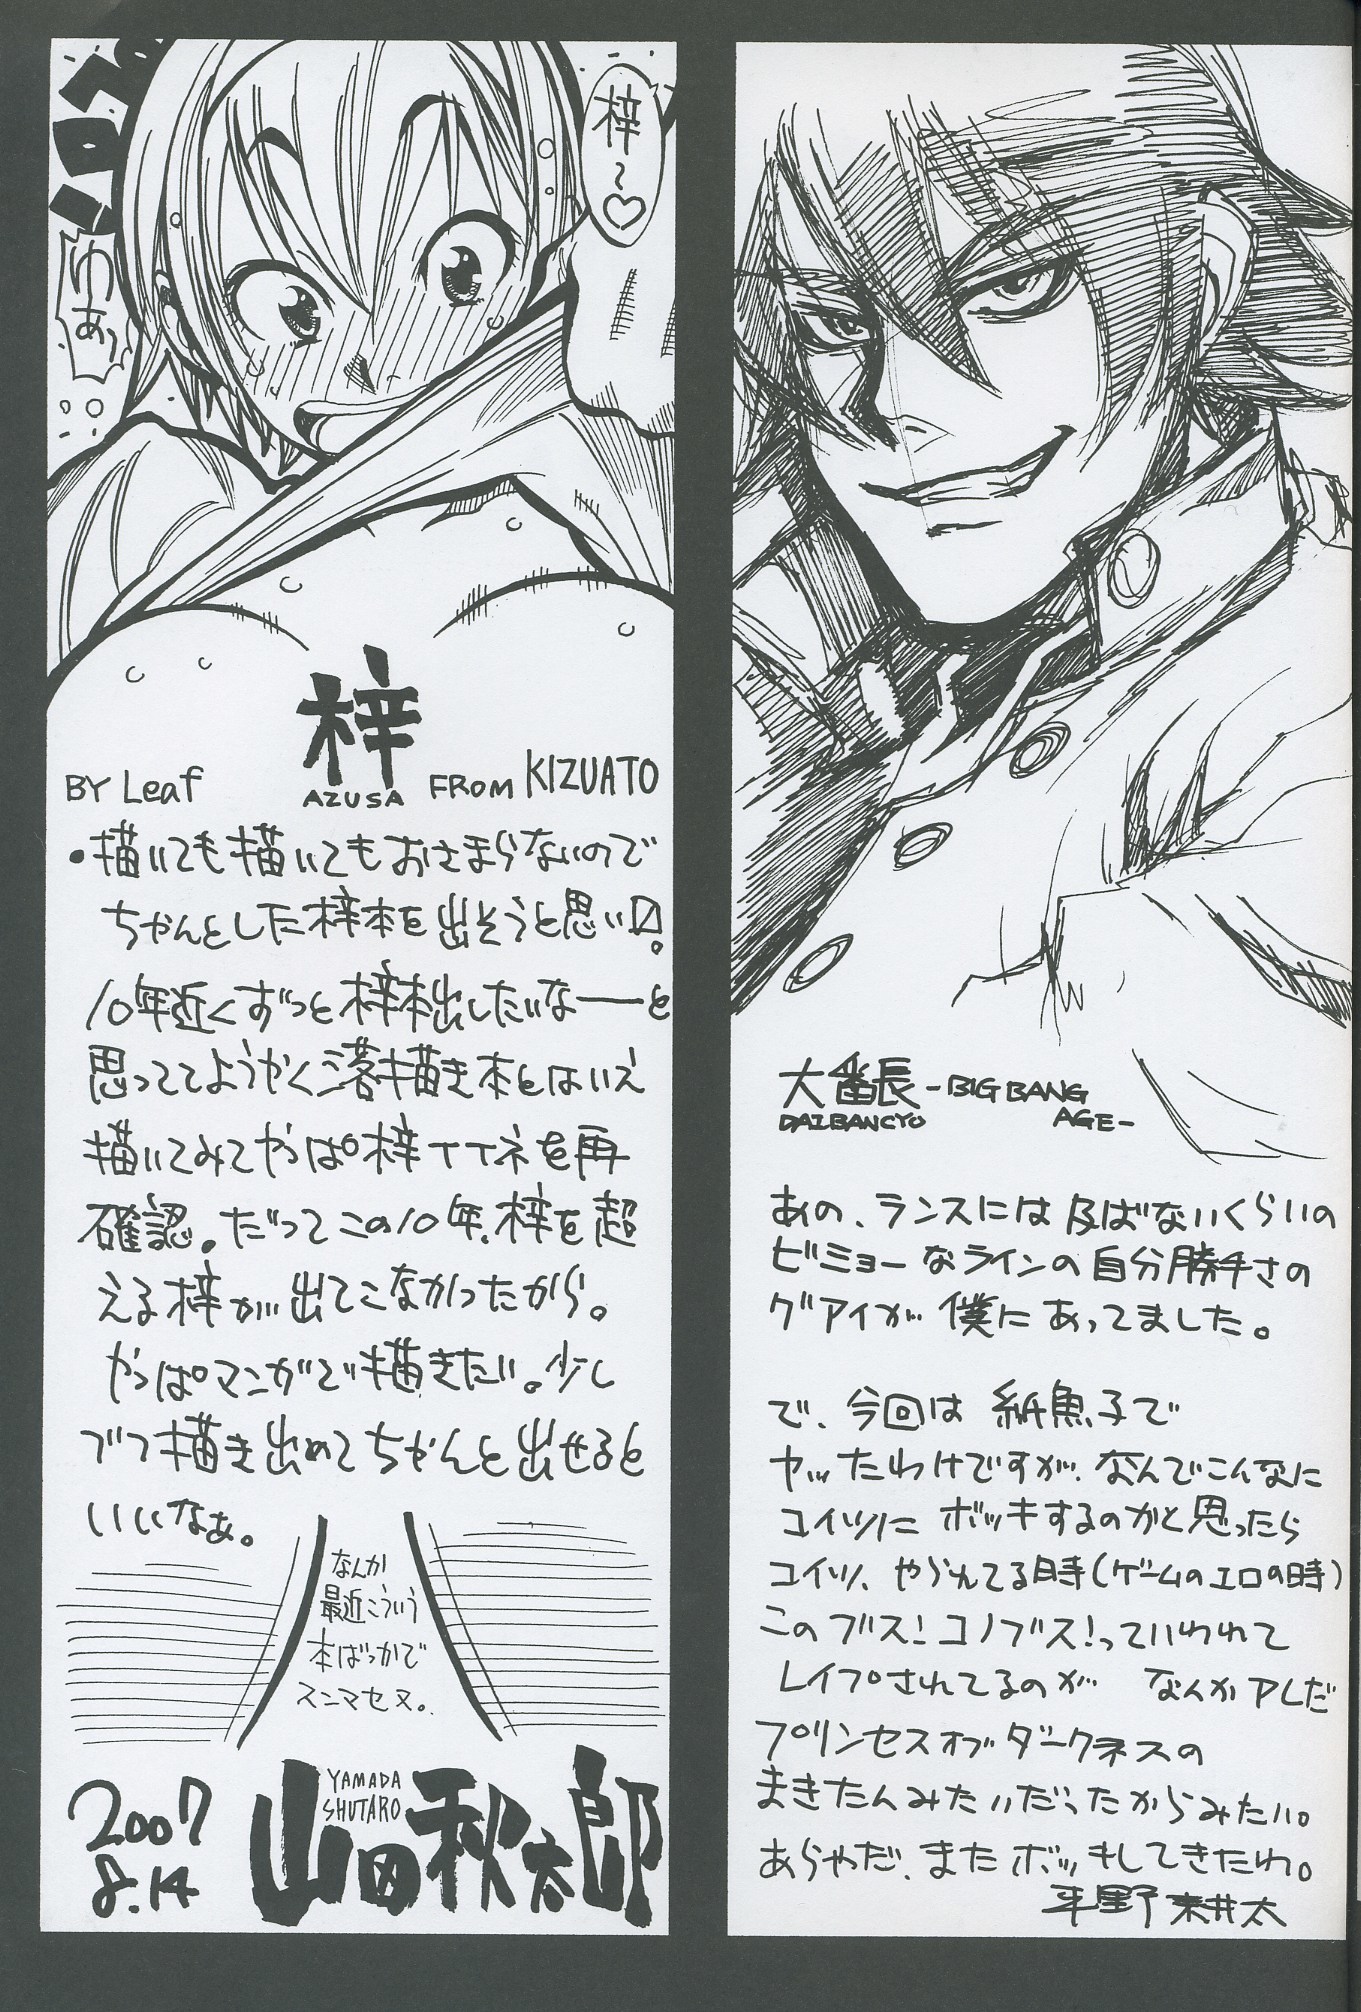 大番長 -BIG BANG
DAIBANCYO AGE-
あの、ランスには及ばないくらいの
ビミョーなラインの自分勝手さの
グアイが僕にあってました。
で、今回は紙魚子で
ヤッたわけですが、なんでこんなに
コイツにボッキするのかと思ったら
コイツ、やられてる時(ゲームのエロの時)
このブス!コノブス!っていわれて
レイプされてるのが なんかアレだ
プリンセスオブダークネスの
まきたんみたいだったからみたい。
あらやだ、またボッキしてきたわ。
平野耕太
梓～♡
ゆあっ
梓
BY Leaf AZUSA FROM KIZUATO
・描いても描いてもおさまらないので
ちゃんとした梓本を出そうと思い〼!
10年近くずっと梓本出したいなーーと
思っててようやく落描き本とはいえ
描いてみてやっぱ梓イイネを再
確認。だってこの10年、梓を超
える梓が出てこなかったから。
やっぱマンガで描きたい。少し
ずつ描き出めてちゃんと出せると
いいなぁ。
なんか
最近こういう
本ばっかで
スンマセヌ。
2007
8.14
YAMADA
SHUTARO
山田秋太郎